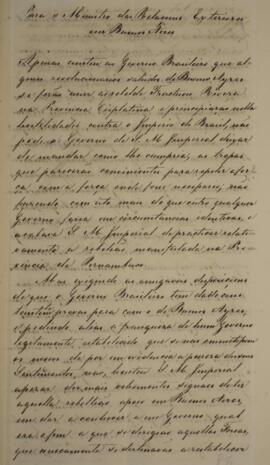 Para o Ministro das Relacoens Exteriores
em Buenos Aires
Apenas constou ao Governo Brasileiro que al-
guns revolucionarios sahidos de Buenos Ayres
se forão unir ao rebelde Fructuoso Rivera
na Provincia Cisplatina e principiarão nella
hostilidades contra o Imperio do Brasil, não
pode o Governo de S. M. Imperial deixar
de mandar, como lhe cumpria, as tropas
que parecerão convenientes para repelir a for-
ça com a força onde fosse necessario, não
fazendo com isto mais do que outro qualquer
Governo faria em circunstancias identicas, e
acabava S. M. Imperial de practicar relati-
vamente á rebelião manifestada na Pro-
vincia de Pernambuco.
Mas exigindo as amigaveis disposicoens
de que o Governo Brasileiro tem dado cons-
tantes provas para com o de Buenos Ayres,
e pedindo alem a franqueza de hum Governo
legitimamente estabelecido que se não omittissem
os meios de por em evidencia a pureza de seus
Sentimentos, não hesitou S. M. Imperial
apezar dos mais vehementes signaes de ter
aquella rebelião apoio em Buenos Ayres,
em dar a conhecer a seu Governo qual
era o fim a que se dirigião aquellas Forças,
que unicamente se destinavão a restabelecer